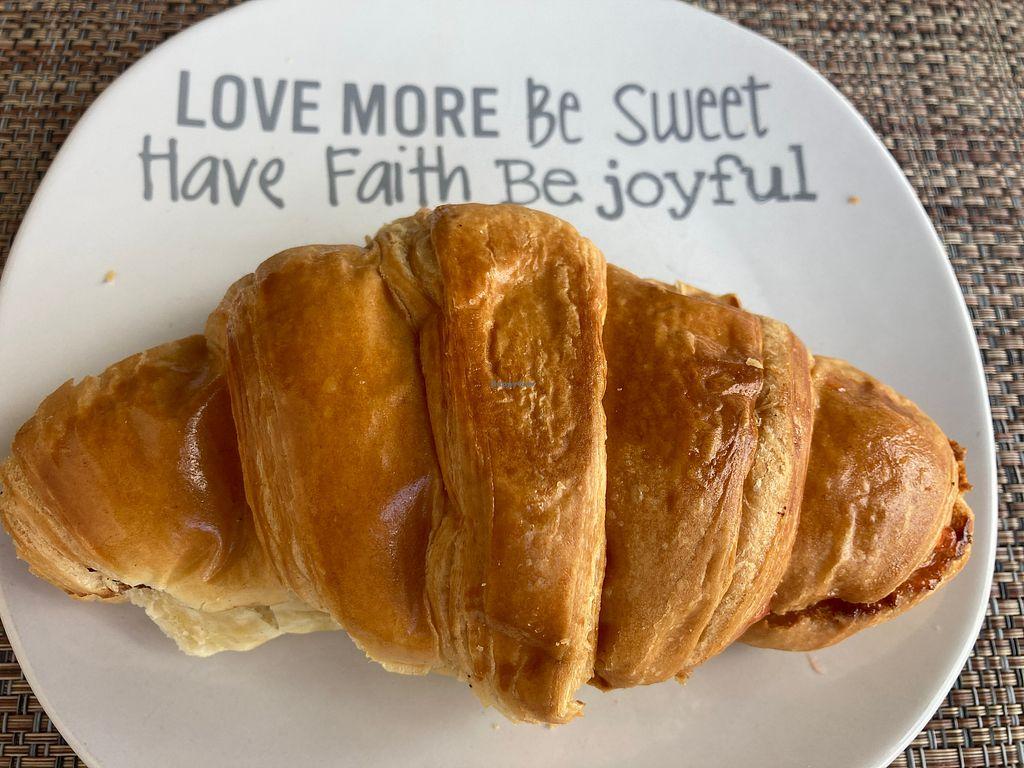 LOVE MORE Be Sweet
Have Faith Be joyful